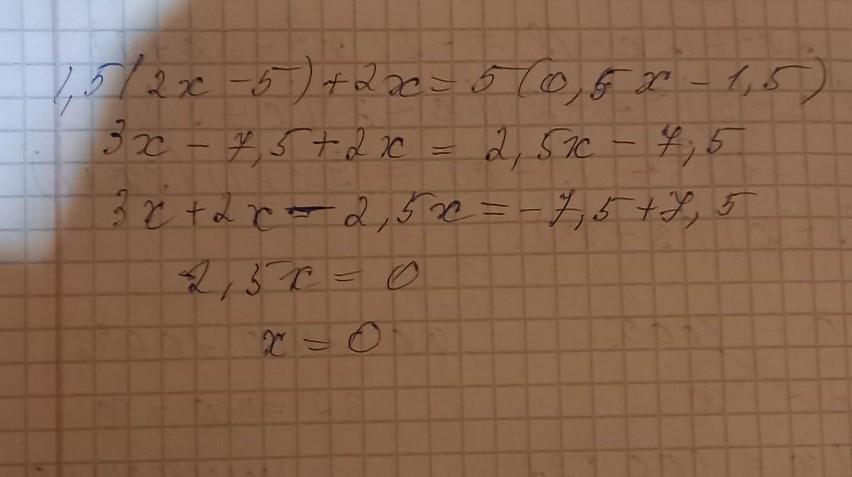 1,5(2x - 5) + 2x = 5(0,5x - 1,5)
3x - 7,5 + 2x = 2,5x - 7,5
3x + 2x - 2,5x = -7,5 + 7,5
2,5x = 0
x = 0